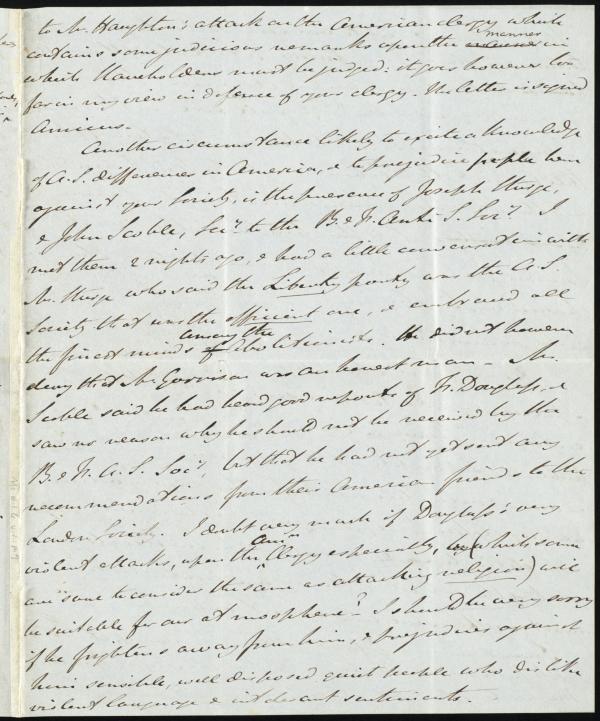 to Mr. Haughton's attack on the American clergy which
contains some judicious remarks upon the manner in
which slaveholders must be judged: it goes however too
far in my view in defence of your clergy. The letter is signed
Amicus.
Another circumstance likely to excite a knowledge
of A.S. differences in America, & to prejudice people here
against your Society, is the presence of Joseph Sturge,
& John Scoble, Secy to the B. & F. Anti-S. Socy. I
met them 2 nights ago, & had a little conversation with
Mr. Sturge who said the Liberty party was the A.S.
Society that was the efficient one, & embraced all
the finest minds among the Abolitionists. He did not however
deny that Mr. Garrison was an honest man. Mr.
Scoble said he had heard good reports of F. Douglass, &
saw no reason why he should not be received by the
B. & F. A.S. Socy, but that he had not yet sent any
recommendations from their American friends to the
London Society. I doubt very much if Douglass's very
violent attacks, upon the Amn Clergy especially, (which some
are some to consider the same as attacking religion) will
be suitable for our atmosphere? I should be very sorry
if he frightens away from him, & prejudices against
him sensible, well disposed quiet people who dislike
violent language & intolerant sentiments.